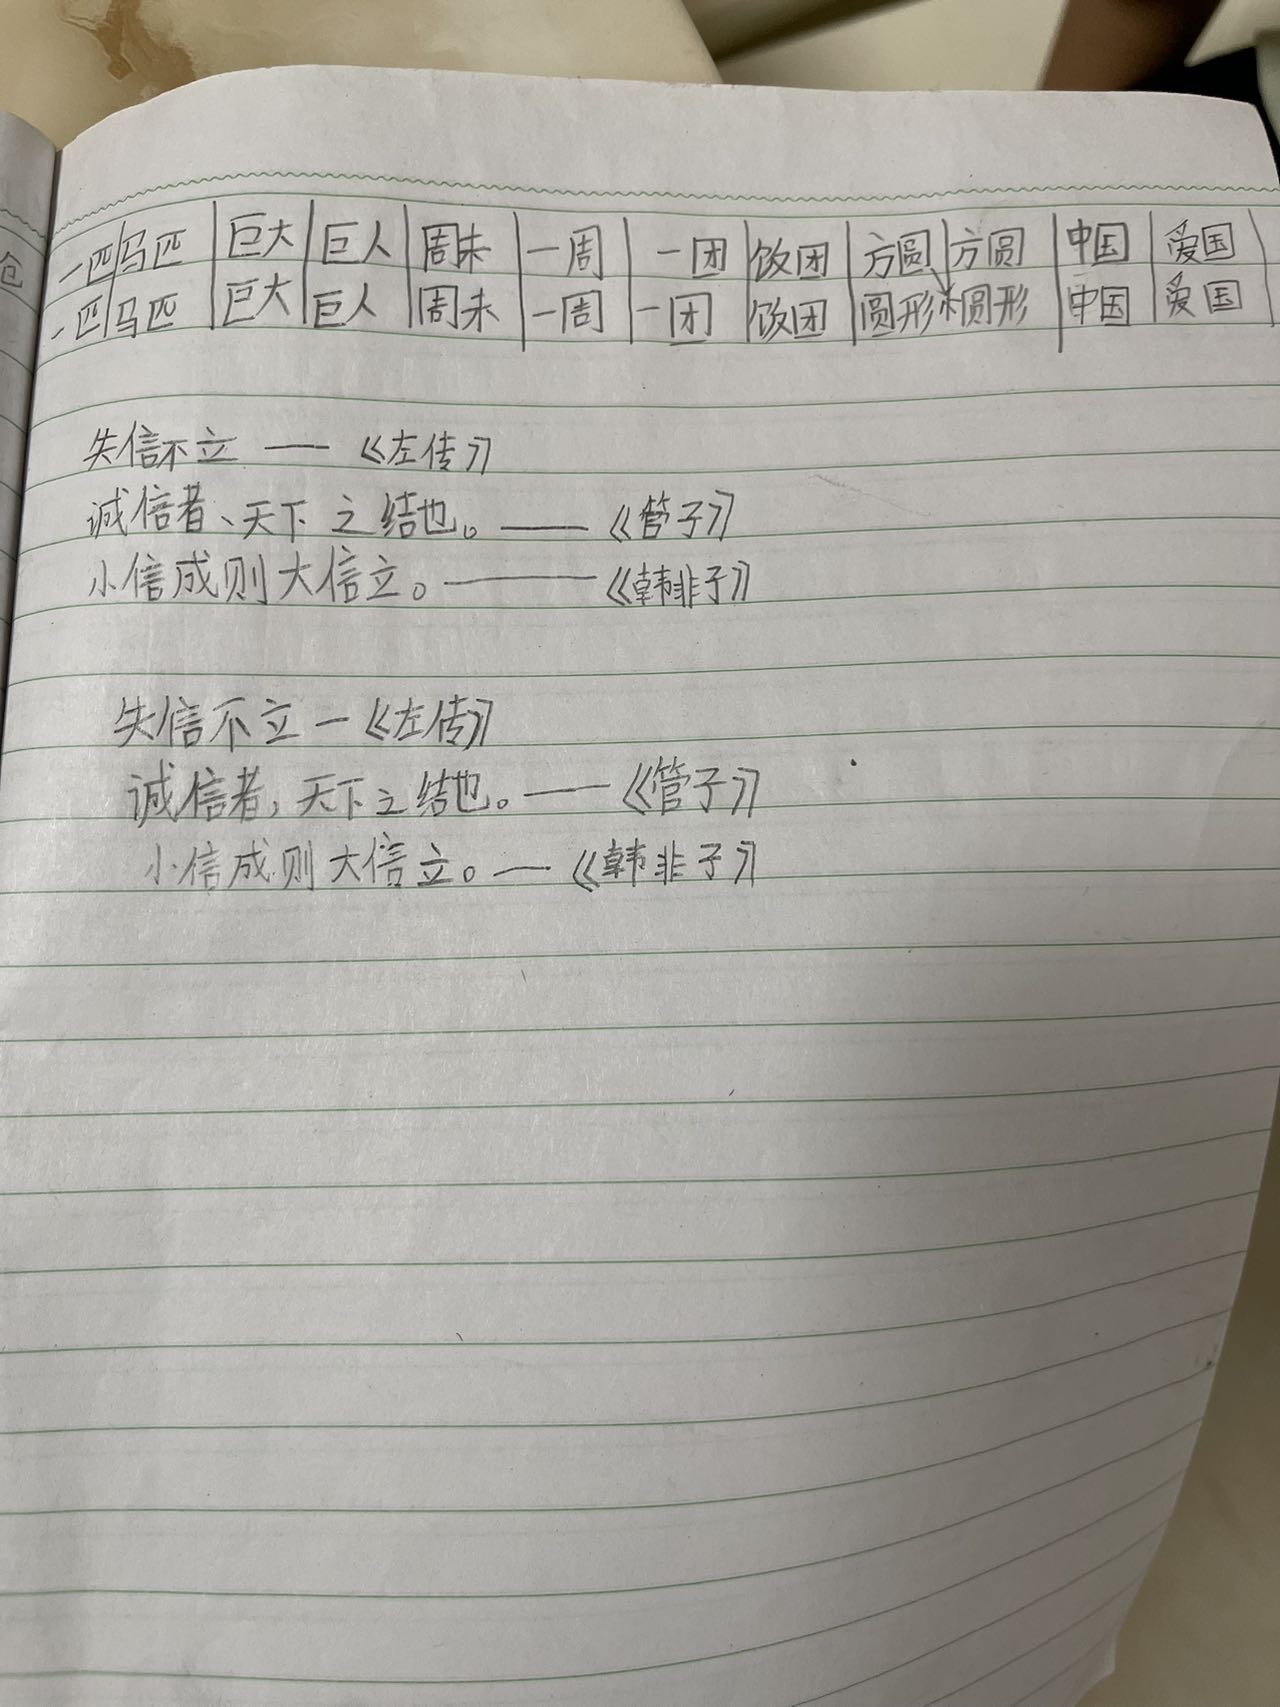 仓
一匹 马匹 巨大 巨人 周末 一周 一团 饭团 方圆 方圆 中国 爱国
一匹 马匹 巨大 巨人 周末 一周 一团 饭团 圆形 圆形 中国 爱国
失信不立 —— 《左传》
诚信者、天下之结也。——《管子》
小信成则大信立。———《韩非子》
失信不立—《左传》
诚信者,天下之结也。——《管子》
小信成则大信立。—《韩非子》